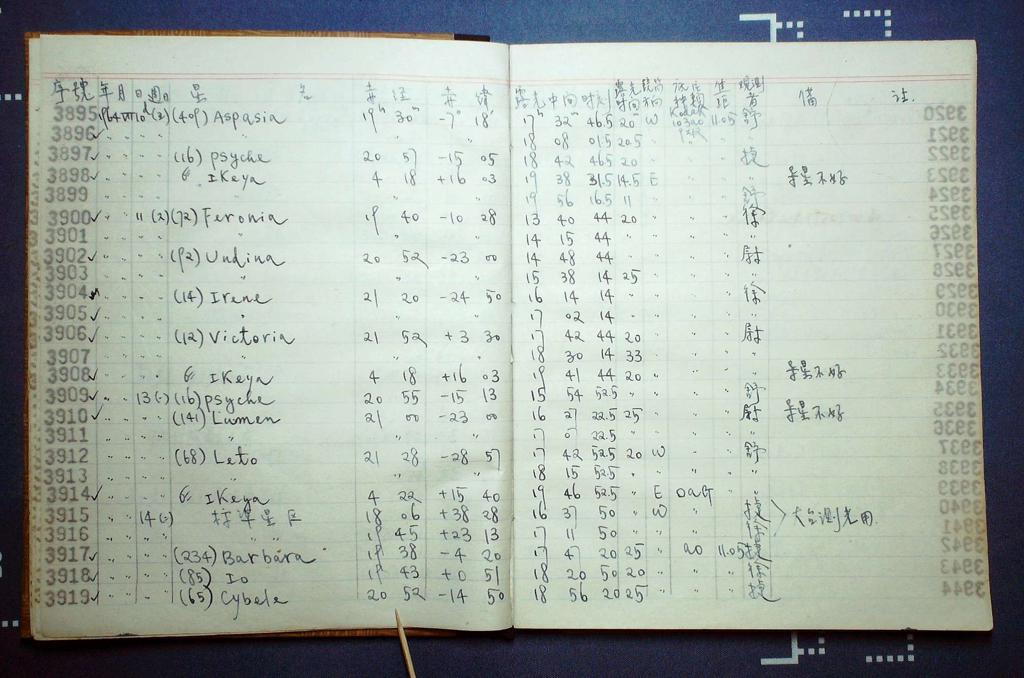 序號 年月 日 週日 星 名 赤 經 赤 緯 露光中間時刻 露光時間 鏡筒方向 种類 焦距 觀測者 備 註
3895 10 (2) (409) Aspasia 19h 30m -7° 18' 17h 32m 46.5 20m W Kodak 103aO 11.05 舒
3896 " " " " " 18 08 01.5 20.5
3897 " " " (16) psyche 20 57 -15 05 18 42 46.5 20 " 捷
3898 " " " IKeya 4 18 +16 03 19 38 31.5 14.5 E " 導星不好
3899 " " " " " " 19 56 16.5 11 " 舒
3900 " 11 (2) (72) Feronia 19 40 -10 28 13 40 44 20 " 徐
3901 " " " " " " 14 15 44 " " "
3902 " " " (92) Undina 20 52 -23 00 14 48 44 " 尉
3903 " " " " " " 15 38 14 25 " "
3904 " " " (14) Irene 21 20 -24 50 16 14 14 " " 徐
3905 " " " " " " 17 02 14 " " "
3906 " " " (12) Victoria 21 52 +3 30 17 42 44 20 " 尉
3907 " " " " " " 18 30 14 33 " "
3908 " " " IKeya 4 18 +16 03 19 41 44 20 " " 導星不好
3909 " 13 (-) (16) psyche 20 55 -15 13 15 54 52.5 " " 舒
3910 " " " (141) Lumen 21 00 -23 00 16 27 22.5 25 " 尉 導星不好
3911 " " " " " " 17 07 22.5 " " "
3912 " " " (68) Leto 21 28 -28 57 17 42 52.5 20 W 舒
3913 " " " " " " 18 15 52.5 " " "
3914 " " " IKeya 4 22 +15 40 19 46 52.5 " E OaG " "
3915 " 14 (-) 标準星区 18 06 +38 28 16 37 50 " W " " 捷 大台測光用
3916 " " " " 19 45 +23 13 17 11 50 " " " "
3917 " " " (234) Barbara 19 38 -4 20 17 47 20 25 " aO 11.05 捷
3918 " " " (85) Io 19 43 +0 51 18 20 50 20 " " " 徐
3919 " " " (65) Cybele 20 52 -14 50 18 56 20 25 " " " 捷